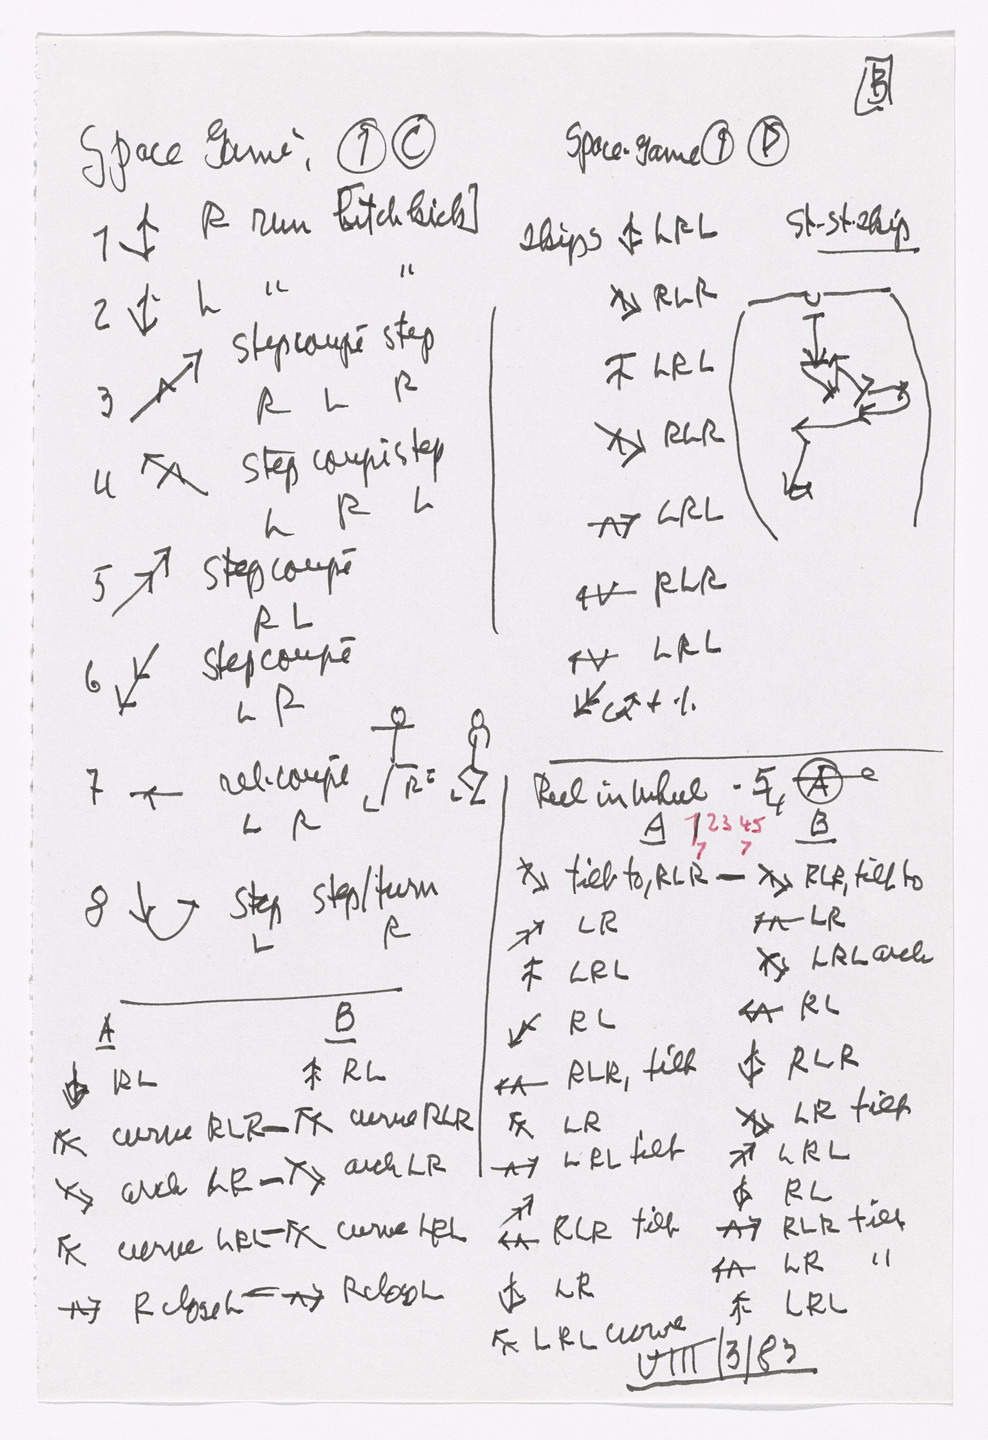 B
Space Game, 1 C
1 R run [hitch kick]
2 L " "
3 step coupé step
R L R
4 step coupé step
L R L
5 step coupé
R L
6 step coupé
L R
7 rel. coupé L R =
L R
8 step step/turn
L R
A B
RL RL
curve RLR – curve RLR
arch LR – arch LR
curve LRL – curve LRL
R close L – R close L
Space-Game 1 D
skips LRL St-st-skip
RLR
LRL
RLR
LRL
RLR
LRL
+ %
Reel in Wheel - 5/4 A
A 1 2 3 4 5 B
tilt to, RLR – RLR, tilt to
LR LR
LRL LRL arch
RL RL
RLR, tilt RLR
LR LR tilt
LRL tilt LRL
RL
RLR tilt RLR tilt
LR LR "
LRL curve LRL
VIII/3/83